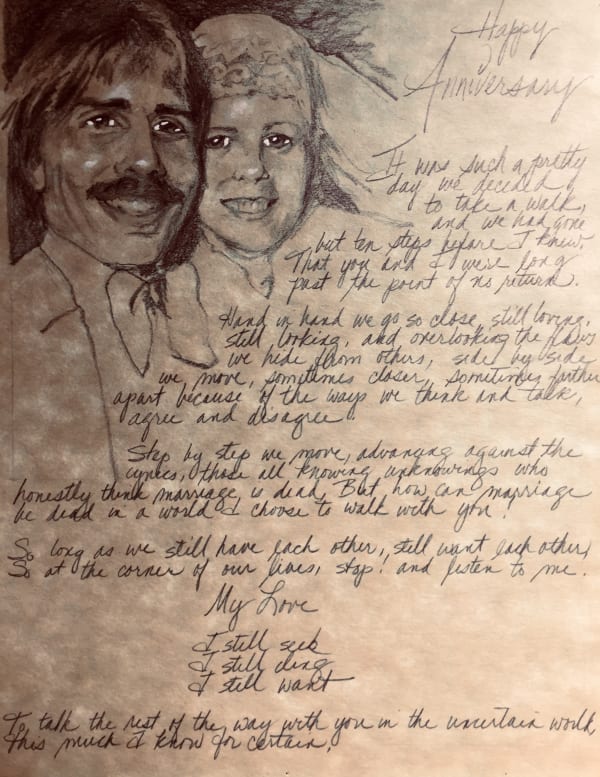 Happy
Anniversary
It was such a pretty
day we decided
to take a walk,
and we had gone
but ten steps before I knew,
That you and I were long
past the point of no return.
Hand in hand we go so close, still loving,
still looking, and overlooking the flaws
we hide from others, side by side
we move, sometimes closer, sometimes farther
apart because of the ways we think and talk,
agree and disagree.
Step by step we move, advancing against the
cynics, those all knowing unknowings who
honestly think marriage is dead. But how can marriage
be dead in a world I choose to walk with you!
So long as we still have each other, still want each other,
So at the corner of our lives, stop! and listen to me.
My Love
I still seek
I still cling
I still want
To talk the rest of the way with you in the uncertain world,
this much I know for certain.